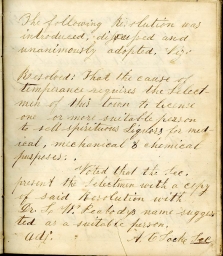 The following Resolution was
introduced, discused and
unanimously adopted. Viz:
Resolved: That the cause of
temperance requires the Select-
men of this town to license
one or more suitable person
to sell spirituous liquors for med-
ical, mechanical & chemical
purposes.
Voted that the Sec.
present the Selectmen with a copy
of said Resolution with
Dr. Peabodys name sugges-
ted as a suitable person.
Adj. A. C. Locke Sec